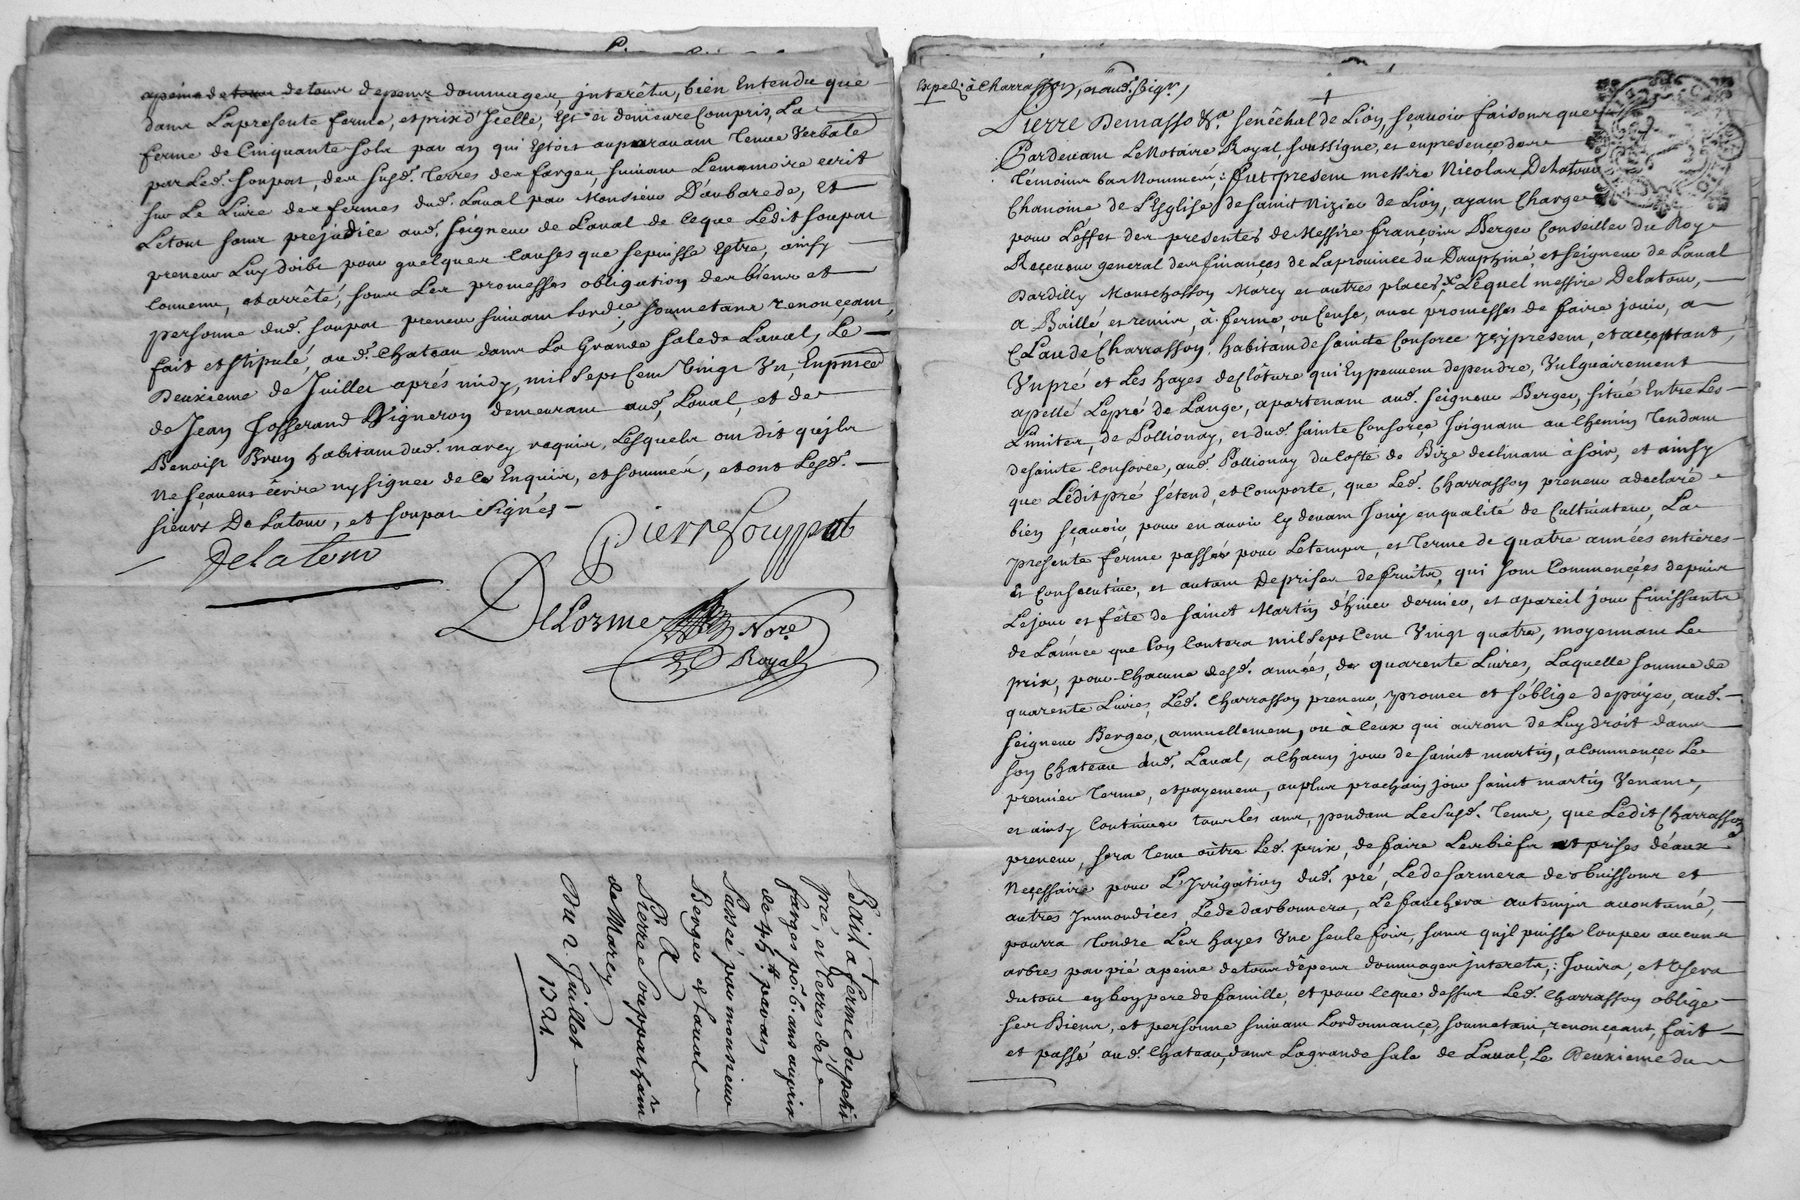 apeine de tous depens dommages, interêts, bien Entendu que
dans Lapresente ferme, et prix d'Icelle, Est et demeure Compris, La
ferme de Cinquante sols par an qui Estoit auparavant Tenue Verbale
par Led. soupat, des susd. Terres des farges, suivant Lememoire ecrit
sur Le Livre des fermes dud. Laval par Monsieur D'aubarede, Et
Letout sans prejudice aud. seigneur de Laval de Ceque Ledit soupat
preneur Luy doibt pour quelques Causes que sepuisse Estre, ainsy
Convenu, et arrêté, sous Les promesses obligation des biens et
personne dud. soupat preneur suivant Lordce, soumetans renonçeant,
fait et stipulé, aud. Chateau dans La Grande sale de Laval, Le
Deuxieme de Juillet aprés midy, mil sept Cent Vingt Un, Enpnce
de Jean Josserand Vigneron demeurant aud. Laval, et de
Benoist Brun habitant dud. marcy requis, Lesquels ont dit qu'ils
Ne sçavent écrire ny signer de Ce Enquis, et sommés, et ont Lesd.
sieurs De Latour, et soupat Signés
Delatour
Pierre Souppat
DeLorme Nore.
Royal
Bail a ferme du petit
pré, et Terres des
farges po. 6. ans au prix
de par an
Passé, par monsieur
Berger de Laval
A
Pierre Souppat habt.
de Marcy
Du 2. Juillet
1721.
Exped. à Charrasson, et aud. Seigr.
Pierre Demasso &a. senéchal de Lion, sçavoir faisons que
Pardevant Le Notaire Royal, soussigné, et enpresence des
Témoins bas Nommés, : fut present messire Nicolas Delatour
Chanoine de L'Eglise de sainct Nizier de Lion, ayant Charge
pour L'effet des presentes de Messire françois Berger Conseiller du Roy
Receveur general des finances de Laprovince du Dauphiné, et seigneur de Laval
Dardilly Monchosson Marcy et autres places, Lequel messire Delatour,
a Baillé, et remis, à ferme, ou Cense, avec promesses de faire jouir, a
Claude Charrasson, habitant de sainte Consorce Jcy present, et acceptant,
Un pré et Les hayes de Clôture qui En peuvent dependre, Vulguairement
apellé Lepré de Lange, apartenant aud. seigneur Berger, situé Entre Les
Limites, de Pollionay, et dud. sainte Consorce, Joignant au Chemin Tendant
de sainte Consorce, aud. Pollionay du Costé de Bize declinant à soir, et ainsy
que Ledit pré s'étend, et Comporte, que Led. Charrasson preneur a declaré
bien sçavoir, pour en avoir Cy devant Jouy en qualité de Cultivateur, La
presente ferme passée pour Letemps, et Terme de quatre années entieres
et Consecutive, et autant De prises de fruits, qui sont Commencées depuis
Lejour et fête de sainct Martin d'hiver dernier, et apareil jour finissants
de L'année que Lon Contera mil sept Cent Vingt quatre, moyennant Le
prix, pour Chacune desd. années, de quarente Livres, Laquelle somme de
quarente Livres, Led. Charrasson preneur, promet et s'oblige depayer, aud.
seigneur Berger, annuellement, ou à Ceux qui auront de Luy droit dans
son Chateau dud. Laval, a Chacun jour de sainct martin, a Commencer Le
premier Terme, et payement, au plus prochain jour sainct martin Venant,
et ainsy Continuer tous les ans, pendant Le susd. Tems, que Ledit Charrasson
preneur, sera Tenu oûtre Led. prix, de faire Les biefs et prises d'éaux
Necessaire pour L'Jrrigation dud. pré, Le desarmera de buissons et
autres Jmmondices, Le dedarbonnera, Le fauchera autemps accoutumé,
pourra Tondre Les hayes Une seule fois, sans qu'jl puisse Couper aucuns
arbres par pié apeine detous dêpens dommages jnterets, : Jouira, et Usera
dutout en bon pere de famille, et pour Ceque dessus Led. Charrasson oblige
ses Biens, et personne suivant Lordonnançe, soumetant, renonçeant, fait
et passé aud. Chateau, dans Lagrande sale de Laval, Le Deuxieme du